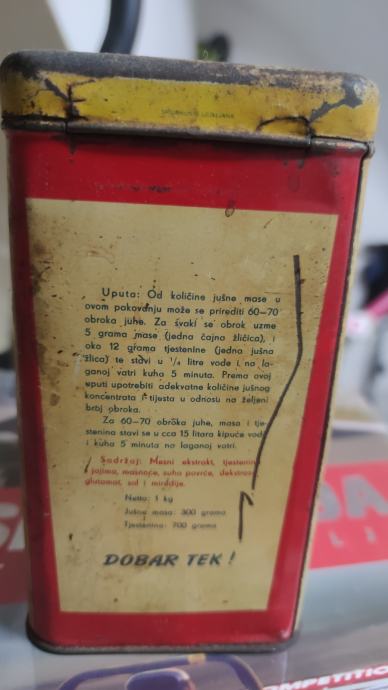 Uputa: Od količine jušne mase u
ovom pakovanju može se prirediti 60—70
obroka juhe. Za svaki se obrok uzme
5 grama mase (jedna čajna žličica), i
oko 12 grama tjestenine (jedna jušna
žlica) te stavi u ¼ litre vode i na la-
ganoj vatri kuha 5 minuta. Prema ovoj
uputi upotrebiti adekvatne količine jušnog
koncentrata i tijesta u odnosu na željeni
broj obroka.
Za 60—70 obroka juhe, masa i tje-
stenina stavi se u cca 15 litara kipuće vode
i kuha 5 minuta na laganoj vatri.
Sadržaj: Mesni ekstrakt, tjestenina
s jajima, masnoće, suho povrće, dekstroza,
glutamat, sol i mirodije.
Netto: 1 kg
Jušne mase: 300 grama
Tjestenina: 700 grama
DOBAR TEK!